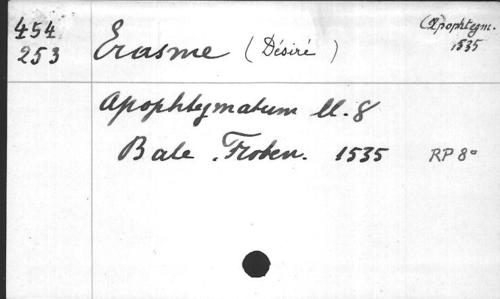 454
253
Erasme (Désiré)
(Apophtegm.
1535
Apophtegmatum ll. 8
Bale. Froben. 1535
RP 8°